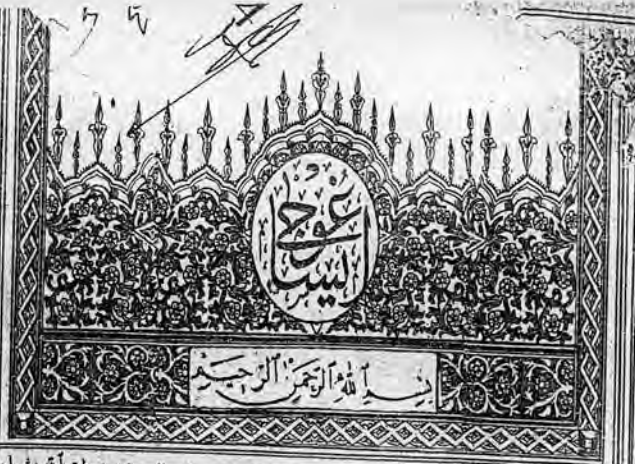 ايساغوجى
بسم الله الرحمن الرحيم